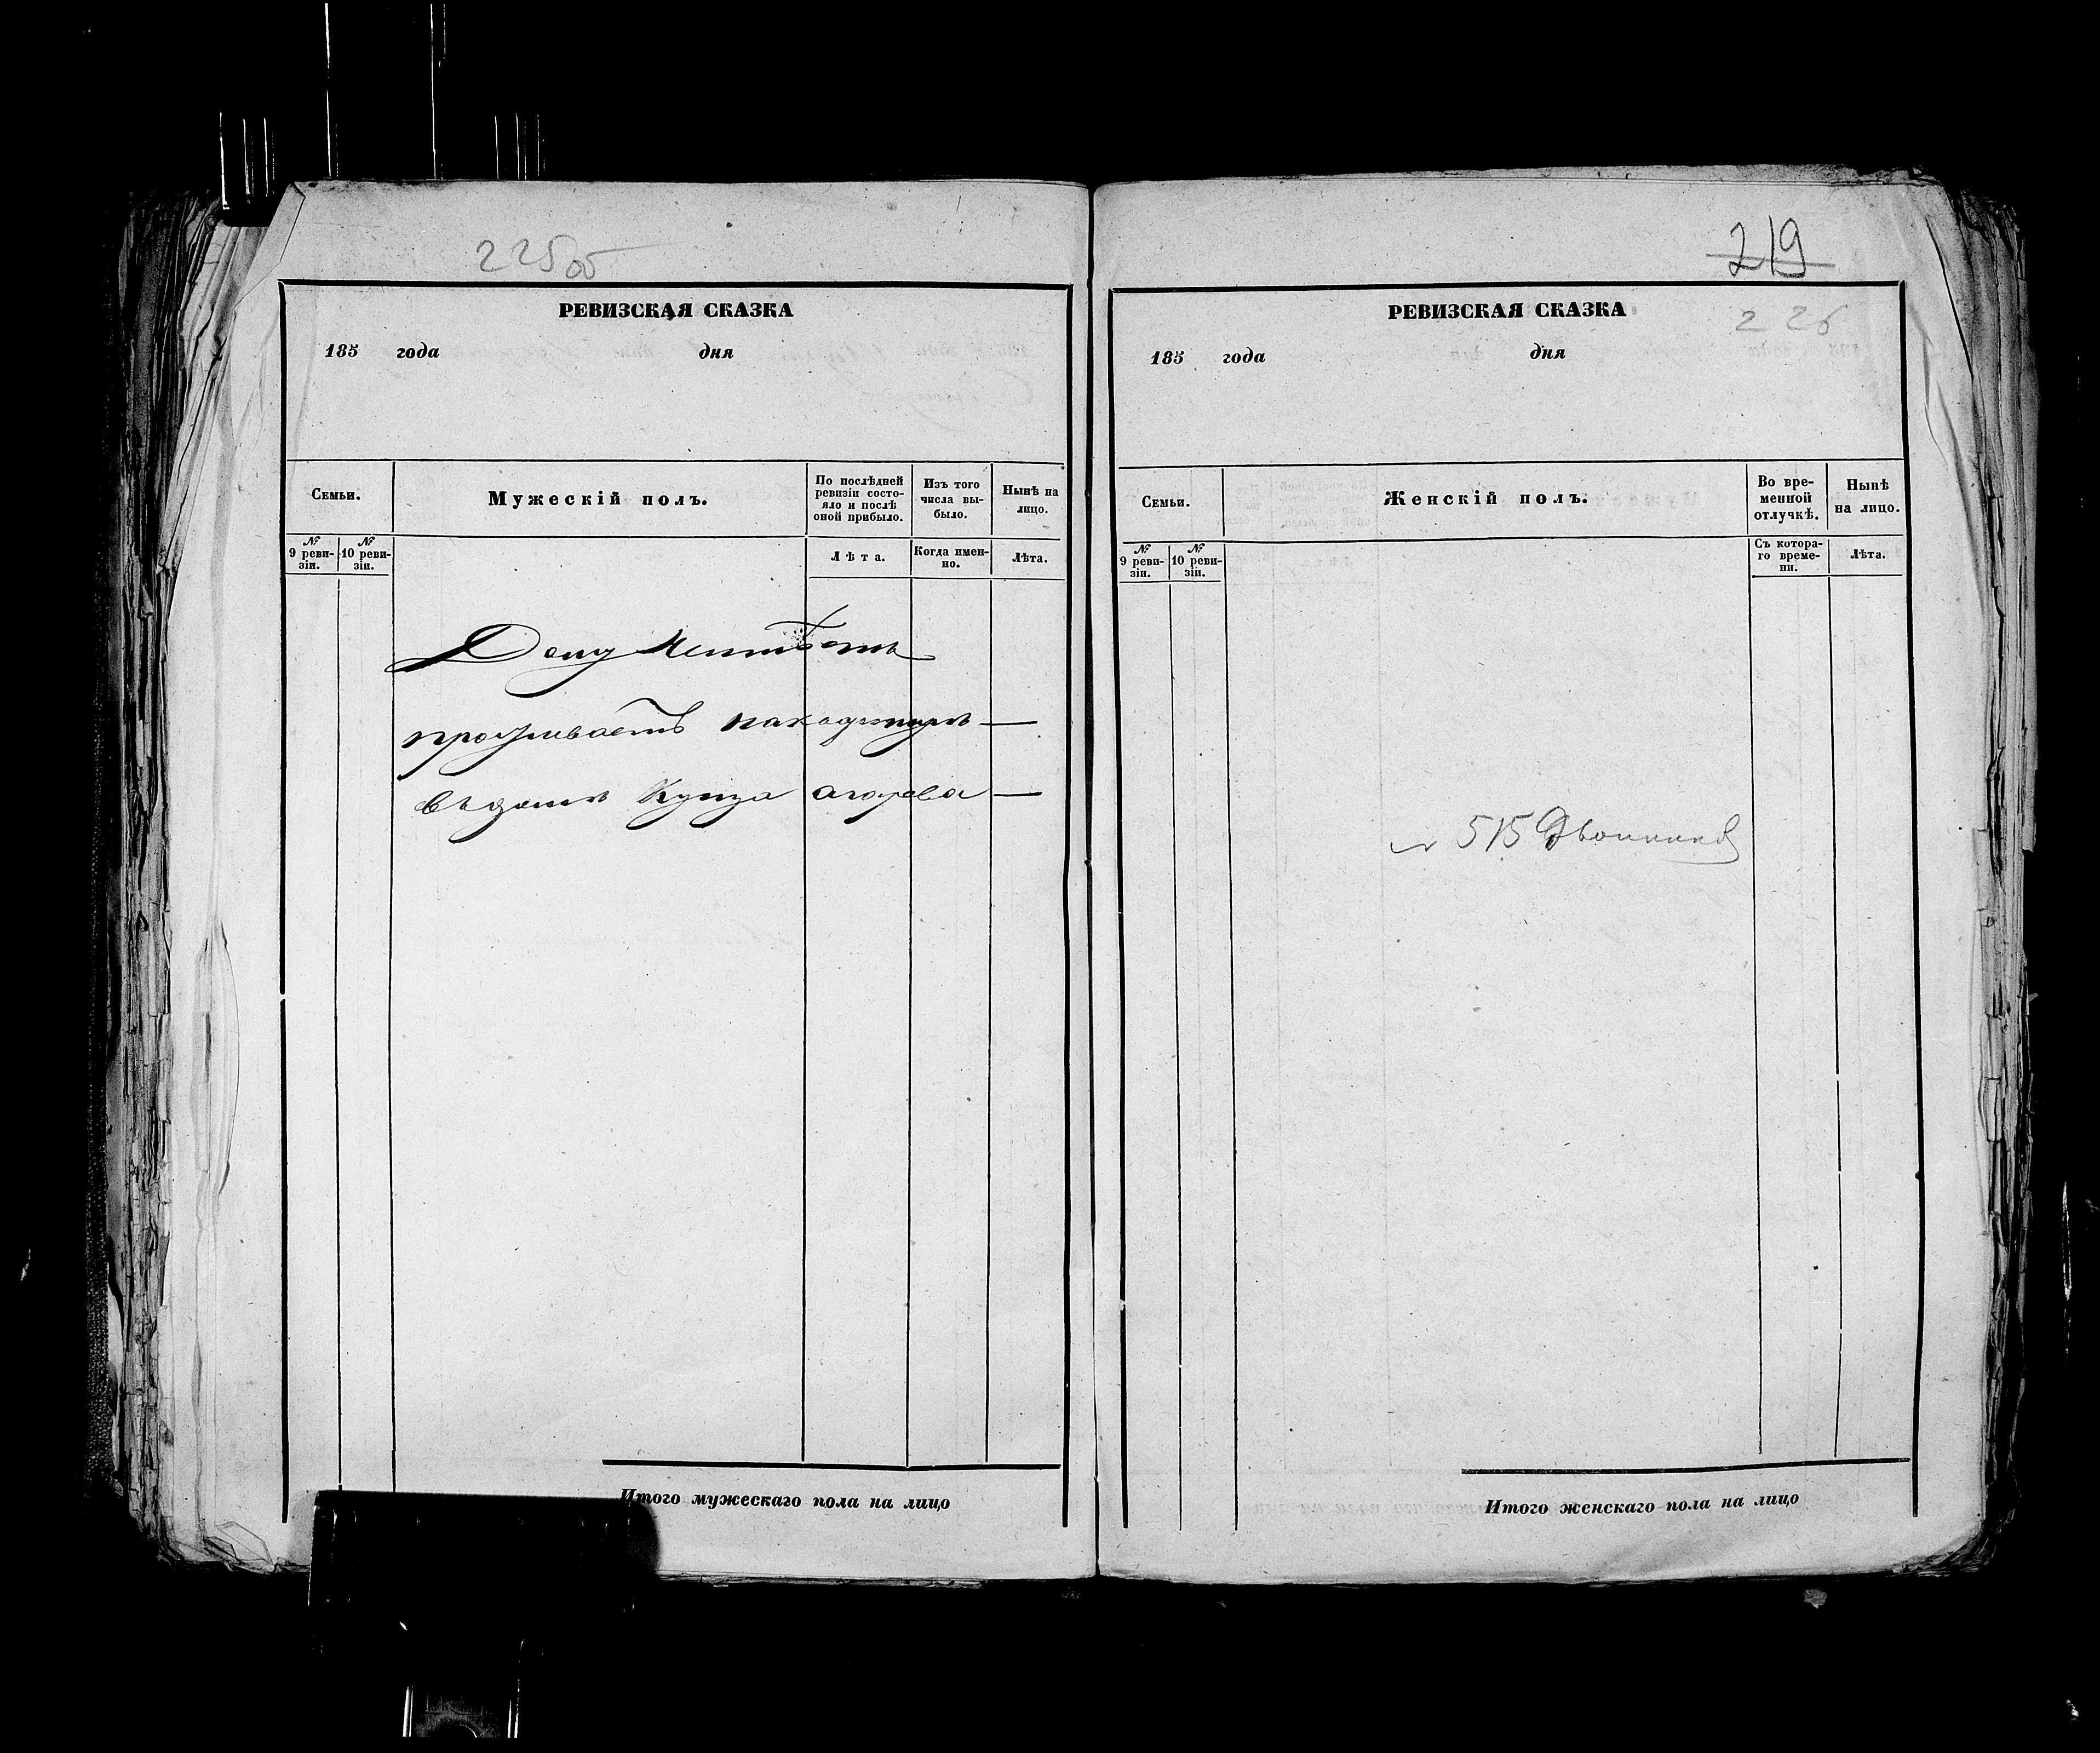 225об
РЕВИЗСКАЯ СКАЗКА
185 года дня
Семьи.
Мужескій полъ.
По послѣдней ревизіи состо-
яло и послѣ оной прибыло.
Изъ того числа вы-
было.
Нынѣ на лицо.
№ 9 реви-
зіи.
№ 10 реви-
зіи.
Лѣта.
Когда имен-
но.
Лѣта.
Дому
проживаетъ
Купца
Итого мужескаго пола на лицо
219
РЕВИЗСКАЯ СКАЗКА
226
185 года дня
Семьи.
Женскій полъ.
Во вре-
менной отлучкѣ.
Нынѣ на лицо.
№ 9 реви-
зіи.
№ 10 реви-
зіи.
Съ котора-
го време-
ни.
Лѣта.
515
Итого женскаго пола на лицо